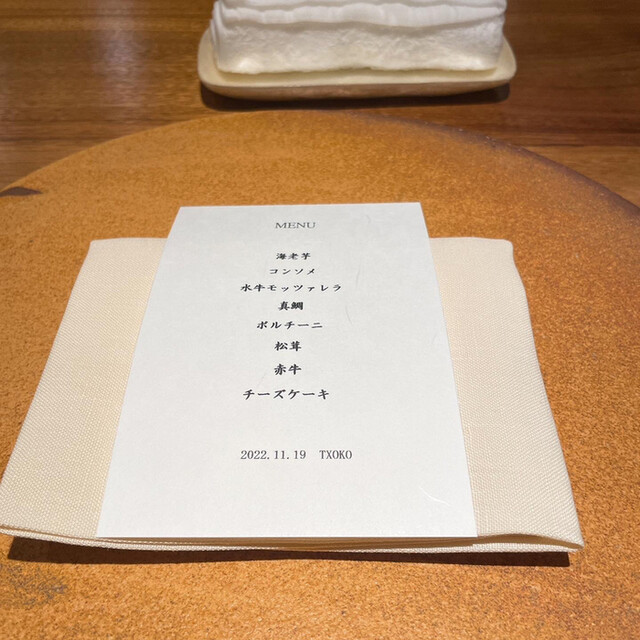 MENU
海老芋
コンソメ
水牛モッツァレラ
真鯛
ポルチーニ
松茸
赤牛
チーズケーキ
2022.11.19 TXOKO